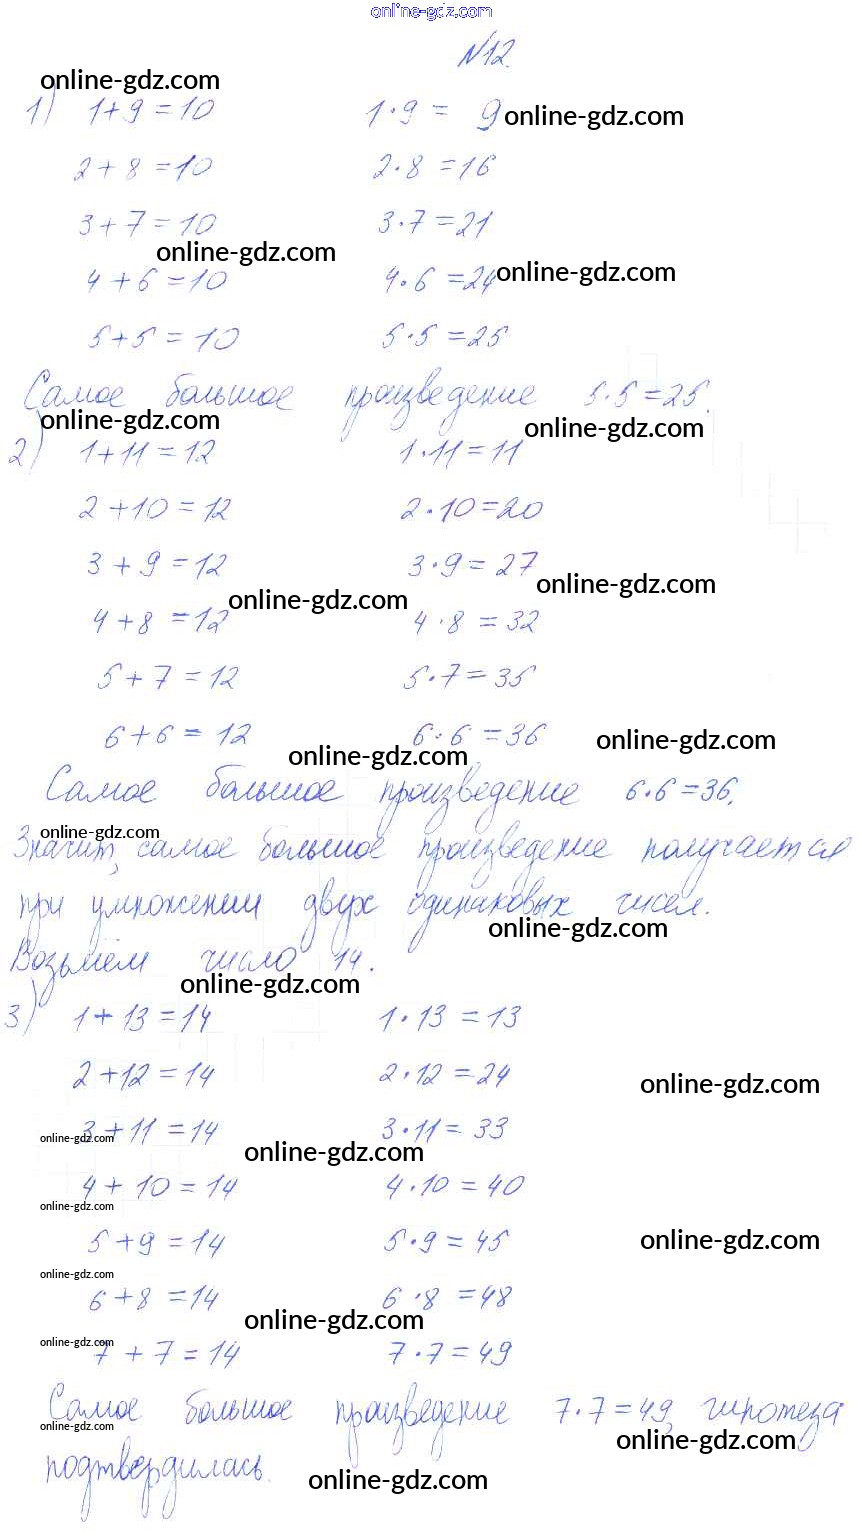 online-gdz.com
№12.
online-gdz.com
1) 1+9=10 1·9= 9 online-gdz.com
2+8=10 2·8=16
3+7=10 3·7=21
online-gdz.com
4+6=10 4·6=24 online-gdz.com
5+5=10 5·5=25
Самое большое произведение 5·5=25.
online-gdz.com online-gdz.com
2) 1+11=12 1·11=11
2+10=12 2·10=20
3+9=12 3·9=27
online-gdz.com online-gdz.com
4+8=12 4·8=32
5+7=12 5·7=35
6+6=12 6·6=36 online-gdz.com
online-gdz.com
Самое большое произведение 6·6=36.
online-gdz.com
Значит, самое большое произведение получается
при умножении двух одинаковых чисел.
online-gdz.com
Возьмём число 14.
online-gdz.com
3) 1+13=14 1·13=13
2+12=14 2·12=24
online-gdz.com
3+11=14 3·11=33
online-gdz.com online-gdz.com
4+10=14 4·10=40
online-gdz.com
5+9=14 5·9=45 online-gdz.com
online-gdz.com
6+8=14 6·8=48
online-gdz.com
online-gdz.com
7+7=14 7·7=49
Самое большое произведение 7·7=49, гипотеза
online-gdz.com online-gdz.com
подтвердилась.
online-gdz.com